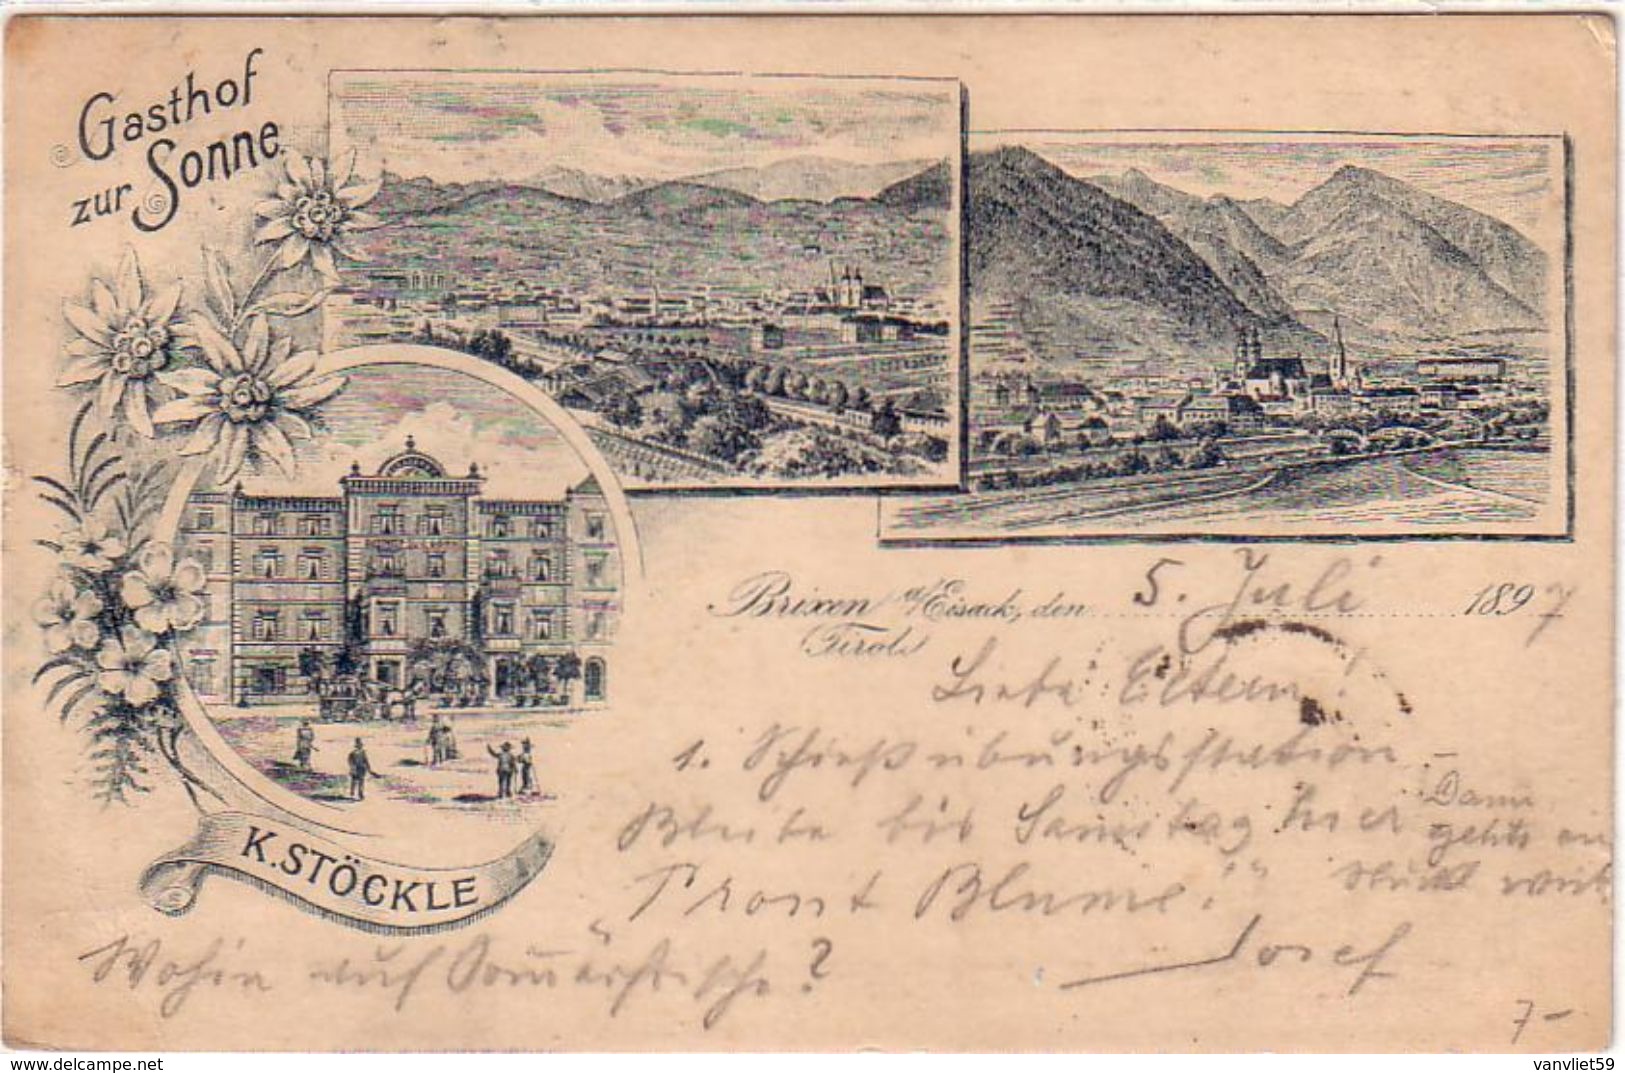 Gasthof
zur Sonne
K. STÖCKLE
Brixen a/Eisack, den 5. Juli 1897
(Tirol)
Liebe Eltern!
1. Schießübungsstation -
Bleibe bis Samstag hier
Dann
gehts
"Prosit Blume!"
Josef
Wohin auf
7-
vanvliet59